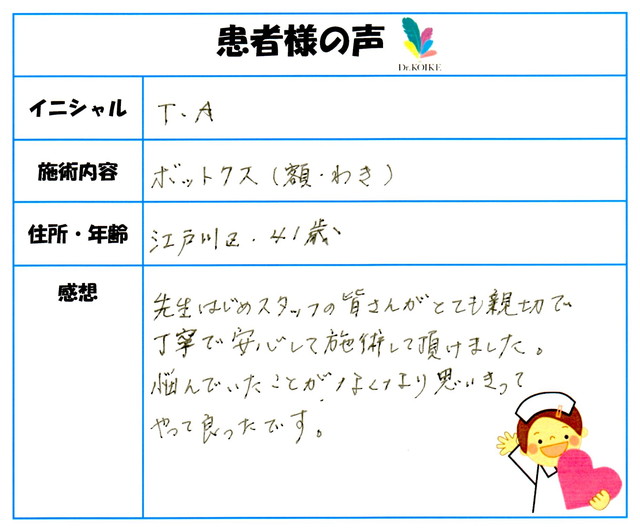 患者様の声
Dr.KOIKE
イニシャル
T.A
施術内容
ボットクス(額・わき)
住所・年齢
江戸川区・41歳
感想
先生はじめスタッフの皆さんがとても親切で
丁寧で安心して施術して頂けました。
悩んでいたことがなくなり思いきって
やって良ったです。